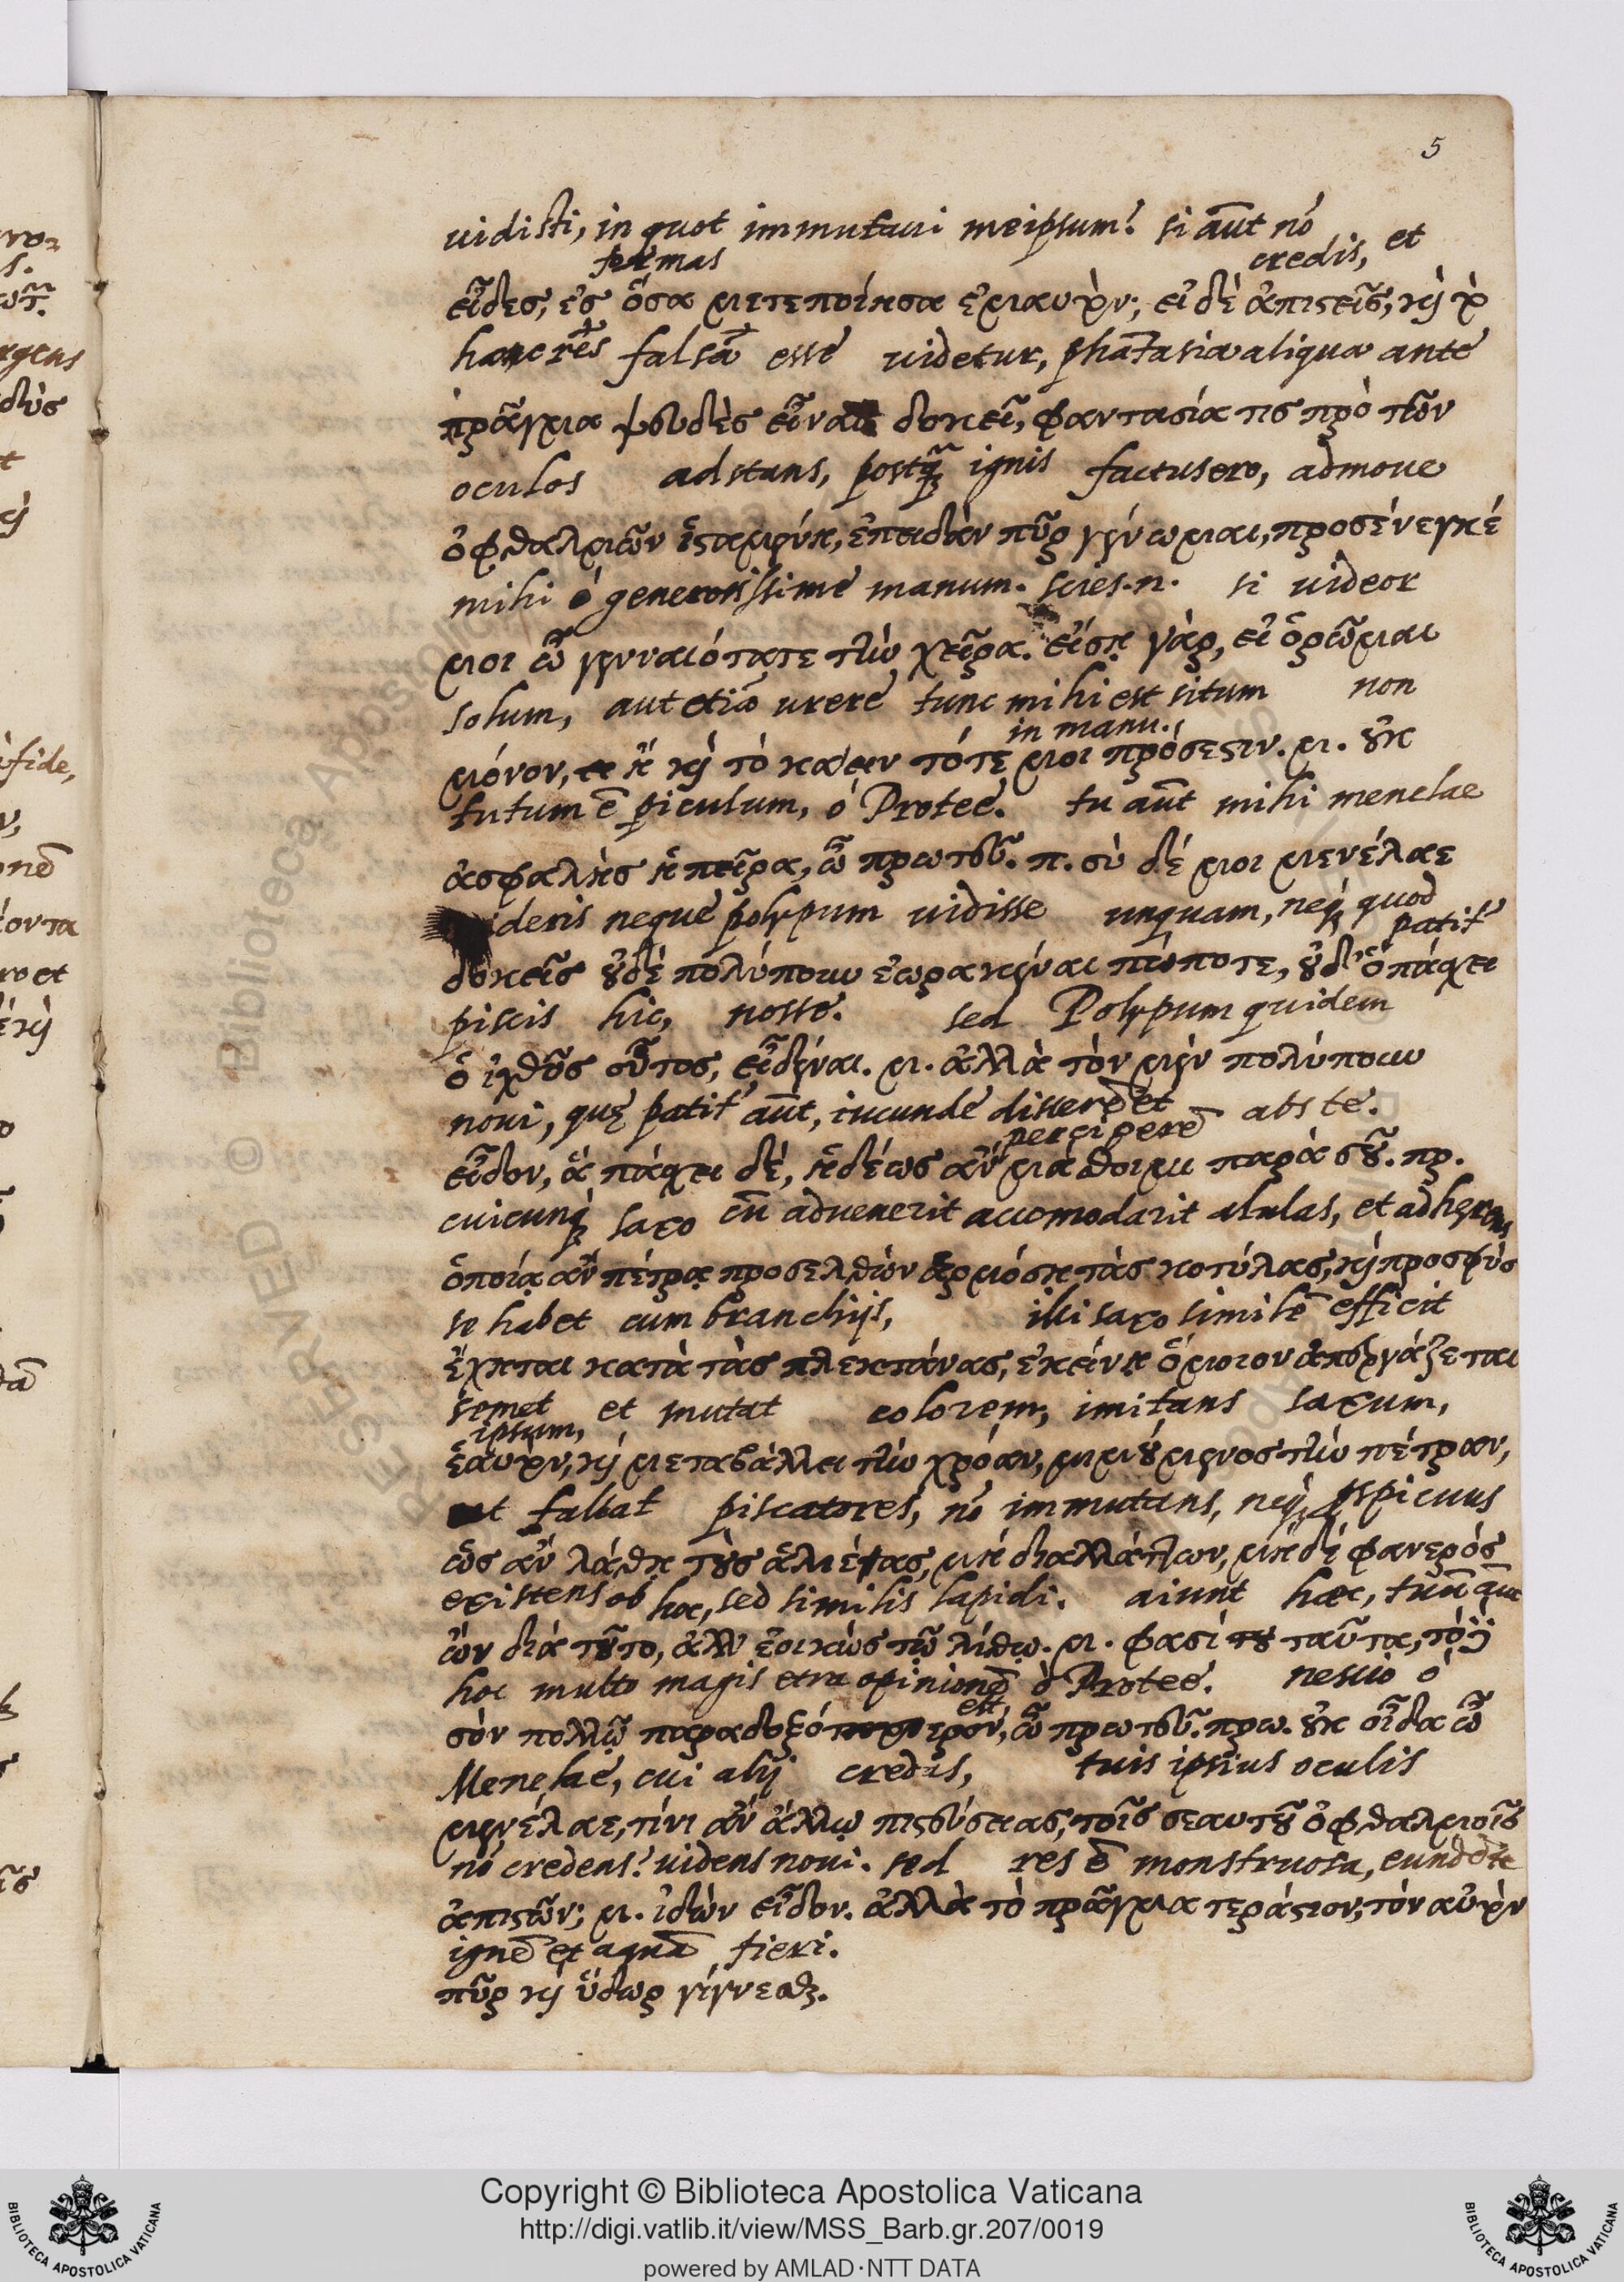 5
uidisti, in quot immutaui meipsum? si aūt nō
formas credis, et
εἶδες, ἐς ὅσα μετεποίησα ἐμαυτὸν; εἰ δὲ ἀπιστεῖς, καὶ τὸ
hanc rē falsā esse uidetur, phātasia aliqua ante
πρᾶγμα ψευδὲς εἶναι δοκεῖ, φαντασία τις πρὸ τῶν
oculos adstans, postq̄ȝ ignis factus ero, admoue
ὀφθαλμῶν ἱσταμένη, ἐπειδὰν πῦρ γένωμαι, προσένεγκέ
mihi ó generosissime manum. scies .n. si uideor
μοι ὦ γενναιότατε τὴν χεῖρα. εἴσῃ γὰρ, εἰ ὁρῶμαι
solum, aut etiā urere tunc mihi est situm non
in manu.
μόνον, ἢ καὶ τὸ καίειν τότε μοι πρόσεστιν. μ. οὐκ
tutum ē piculum, ó Proteé. tu aūt mihi menelae
ἀσφαλὴς ἡ πεῖρα, ὦ πρωτεῦ. π. σὺ δέ μοι μενέλαε
uideris neque polypum uidisse unquam, neqȝ quod
patit᷑
δοκεῖς οὐδὲ πολύπουν ἑωρακέναι πώποτε, οὐδ' ὃ πάσχει
piscis hic, nosse. sed Polypum quidem
ὁ ἰχθῦς οὗτος, εἰδέναι. μ. ἀλλὰ τὸν μὲν πολύπουν
noui, quę patit᷑ aūt, iucunde discerē et
perciperē abs te.
εἶδον, ἃ πάσχει δέ, ἡδέως ἂν μάθοιμι παρὰ σοῦ. πρ.
cuicunqȝ saxo cū aduenerit accomodarit alulas, et adhęrens
ὁποίᾳ ἂν πέτρᾳ προσελθὼν ἁρμόσῃ τὰς κοτύλας, καὶ προσφὺς
se habet cum branchijs, illi saxo similē efficit
ἔχηται κατὰ τὰς πλεκτάνας, ἐκείνῃ ὅμοιον ἀπεργάζεται
semet et mutat colorem, imitans saxum,
ipsum,
ἑαυτὸν, καὶ μεταβάλλει τὴν χρόαν, μιμούμενος τὴν πέτραν,
ut fallat piscatores, nō immutans, neqȝ pspicuus
ὡς ἂν λάθῃ τοὺς ἁλιέας, μὴ διαλλάττων, μηδὲ φανερός
existens ob hoc, sed similis lapidi. aiunt haec, tuū aūt
ὢν διὰ τοῦτο, ἀλλ' ἐοικὼς τῷ λίθῳ. μ. φασί ταῦτα, τὸ δὲ
hoc multo magis extra opinionē ó Proteé. nescio ó
est
σὸν πολλῷ παραδοξότερον, ὦ πρωτεῦ. πρω. οὐκ οἶδα ὦ
Menelaé, cui alij credas, tuis ipsius oculis
μενέλαε, τίνι ἂν ἄλλῳ πιστεύσειας, τοῖς σεαυτοῦ ὀφθαλμοῖς
nō credens? uidens noui. sed res ē monstruosa, eundē
ἀπιστῶν; μ. ἰδὼν εἶδον. ἀλλὰ τὸ πρᾶγμα τεράστιον, τὸν αὐτὸν
ignē et aquā fieri.
πῦρ καὶ ὕδωρ γίγνεσθαι.
Copyright © Biblioteca Apostolica Vaticana
http://digi.vatlib.it/view/MSS_Barb.gr.207/0019
powered by AMLAD·NTT DATA